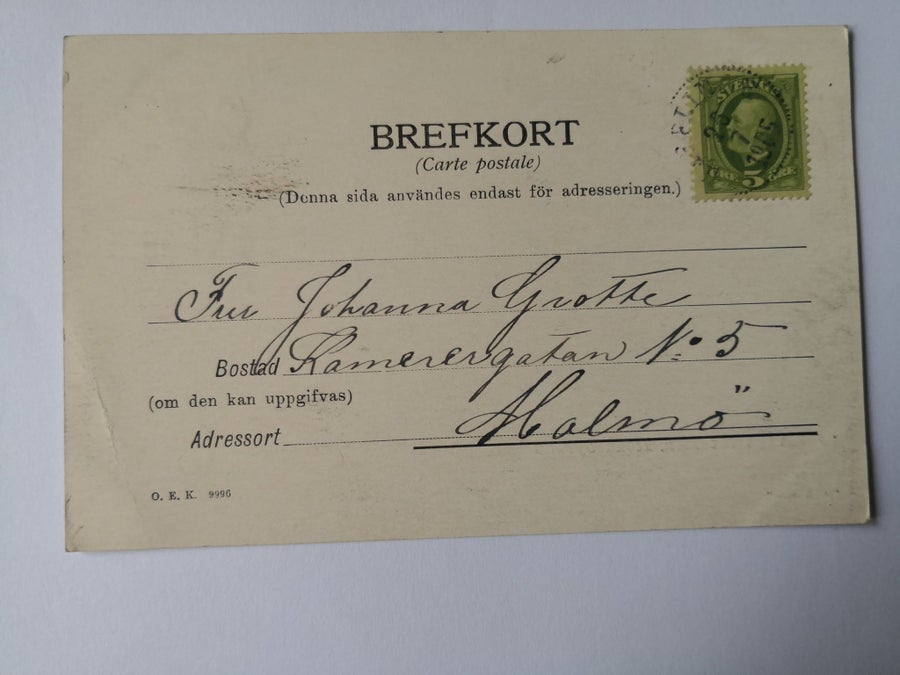 BREFKORT
(Carte postale)
(Denna sida användes endast för adresseringen.)
SVERIGE
5
ÖRE ÖRE
Fru Johanna Grotte
Bostad Kamerergatan No 5
(om den kan uppgifvas)
Adressort Malmö
O. E. K. 9996